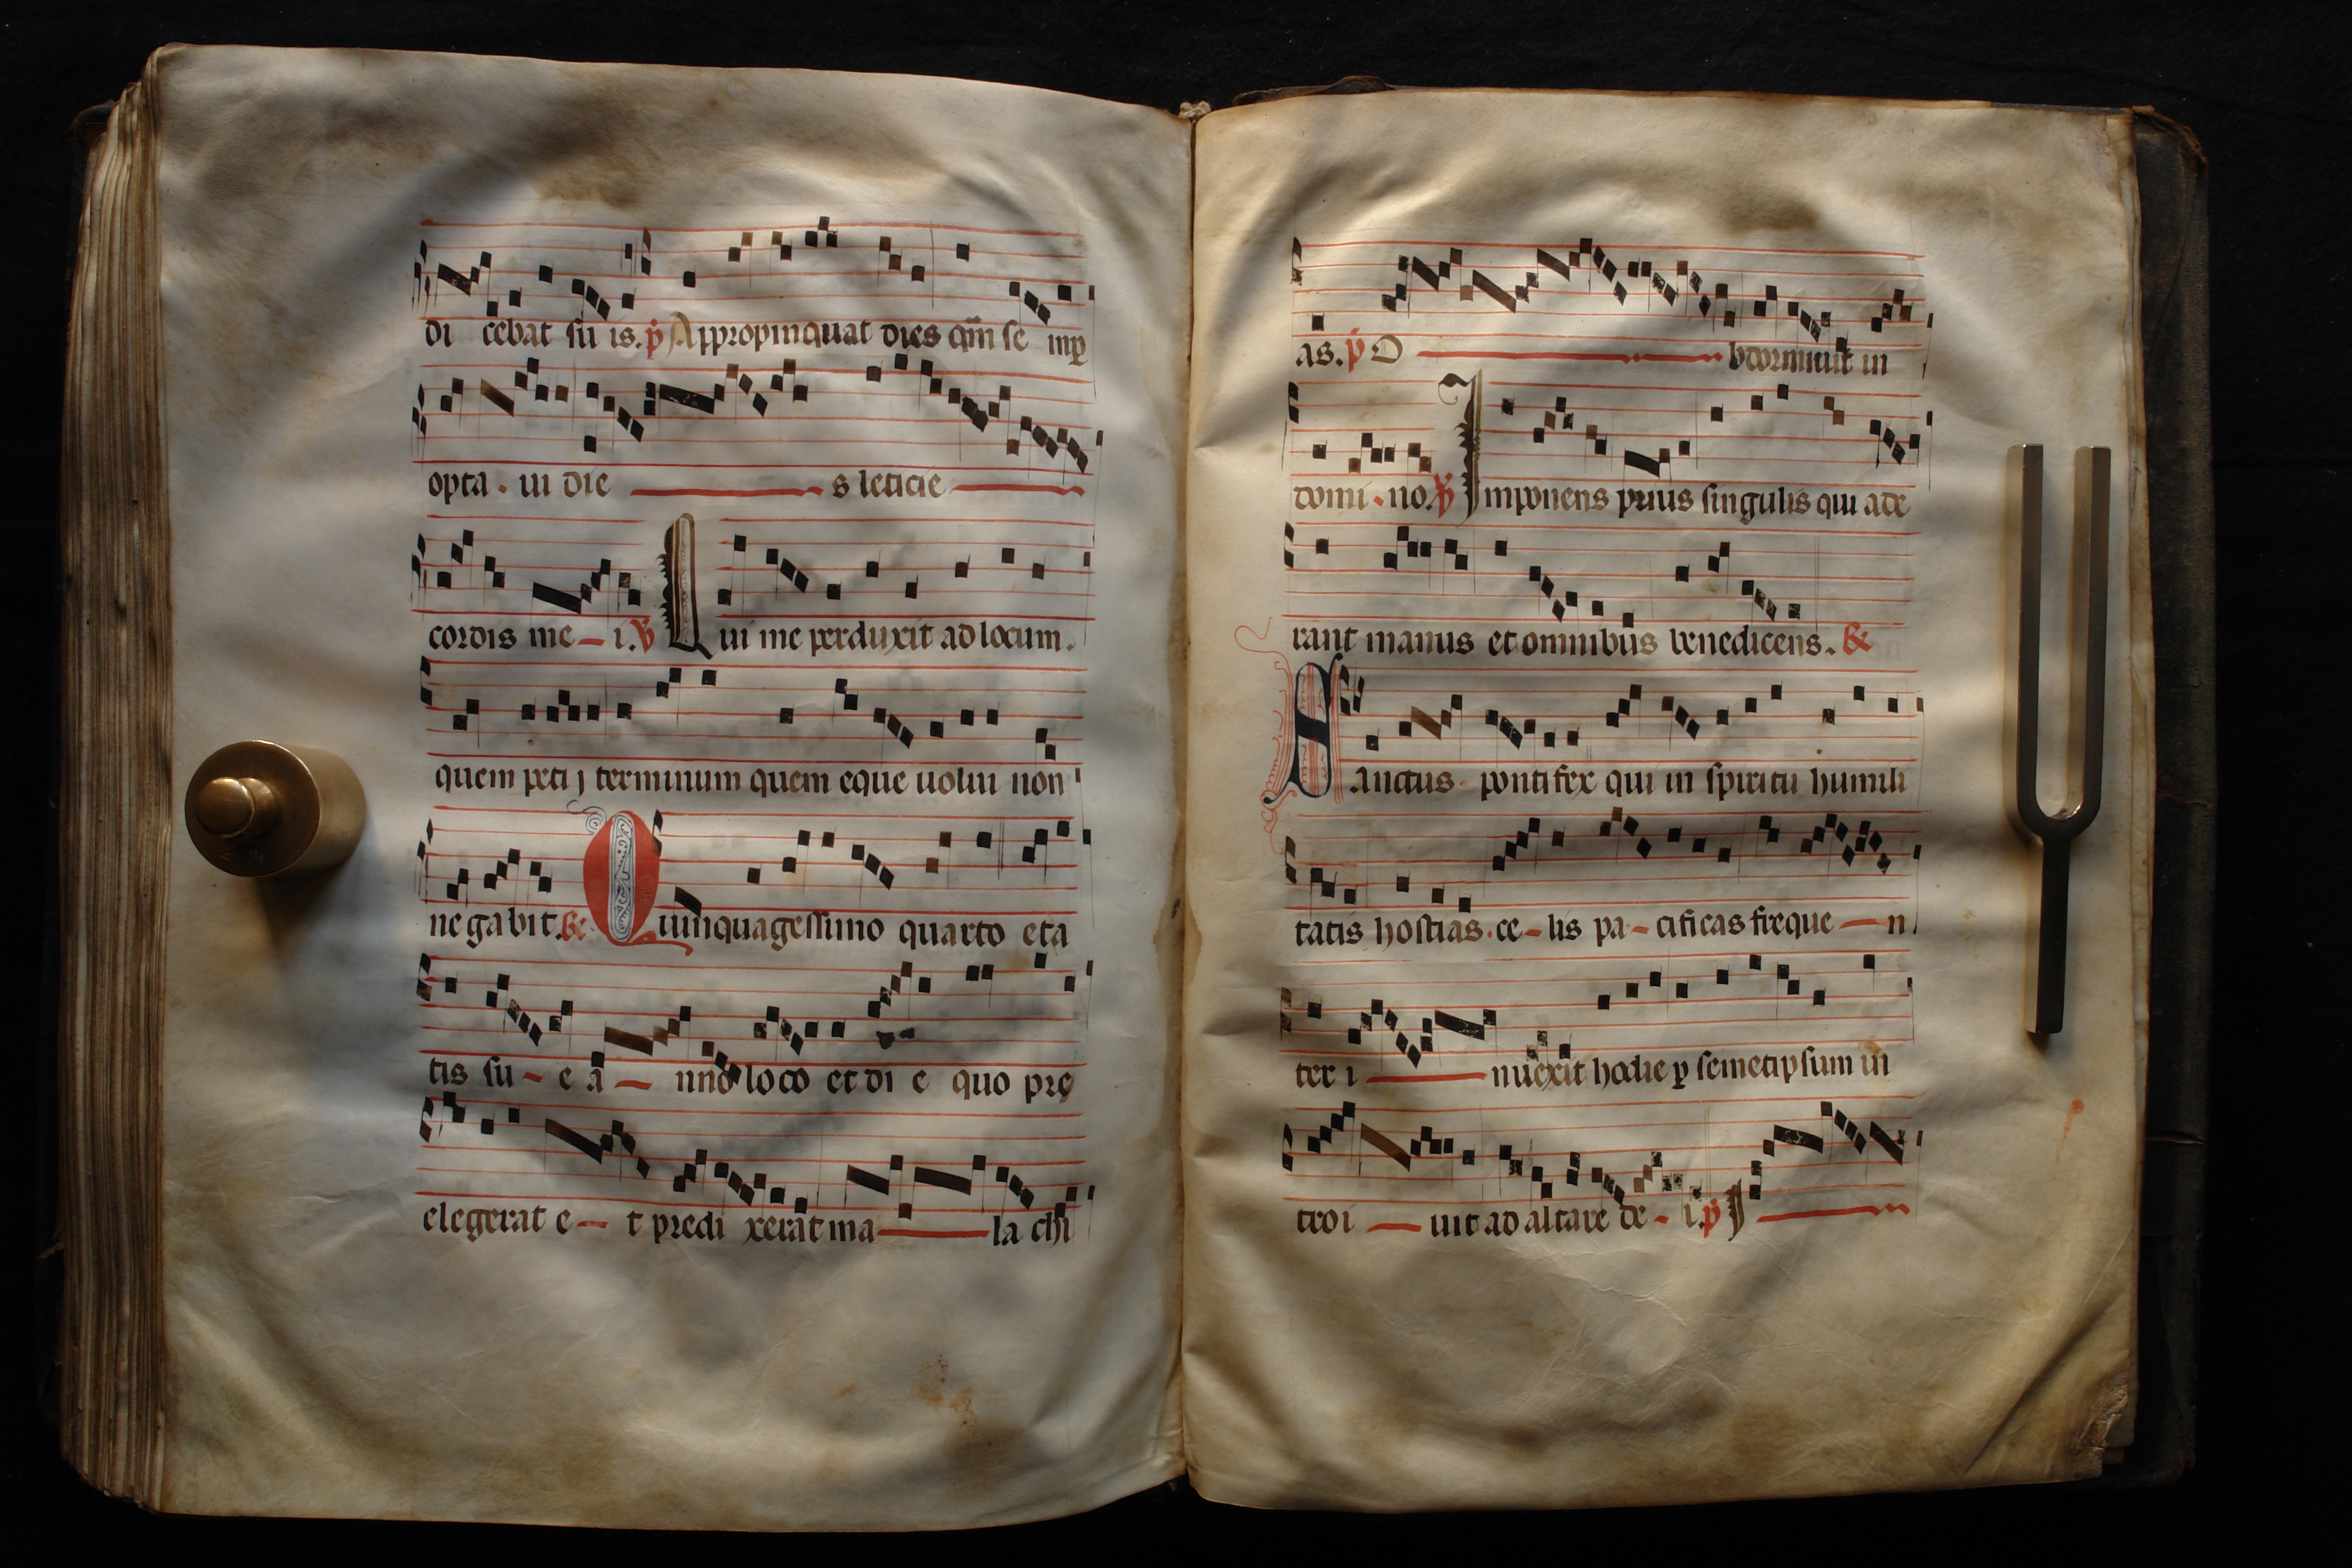 di cebat su is. p Appropinquat dies qm se mp
opta. ui die s leticie
cordis me i. V Qui me perduxit ad locum.
quem peti j terminum quem eque uolui non
negabit. Quinquagessimo quarto eta
tis su e a nno loco et di e quo pre
elegerat e t predi xerat ma la chi
as. p O bdormiuit in
domi. no. V Imponens prius singulis qui ade
rant manus et omnibus benedicens.
Sanctus pontifex qui in spiritu humili
tatis hostias. ce lis pa cificas freque n
ter i nuexit hodie p semetipsum in
troi uit ad altare de i. p I